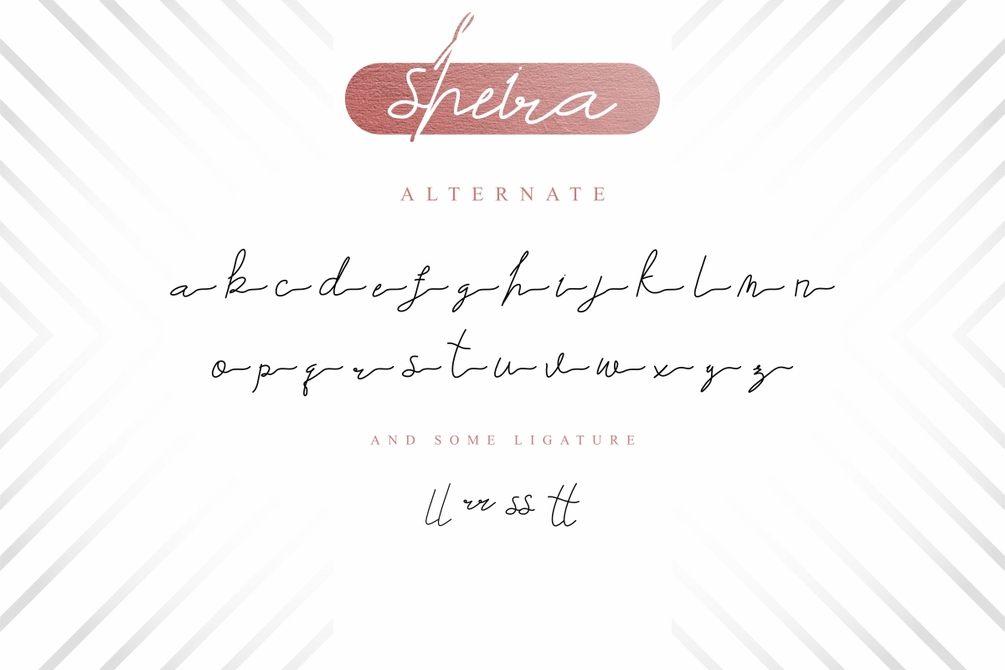 sheira
ALTERNATE
a b c d e f g h i j k l m n
o p q r s t u v w x y z
AND SOME LIGATURE
ll rr ss tt